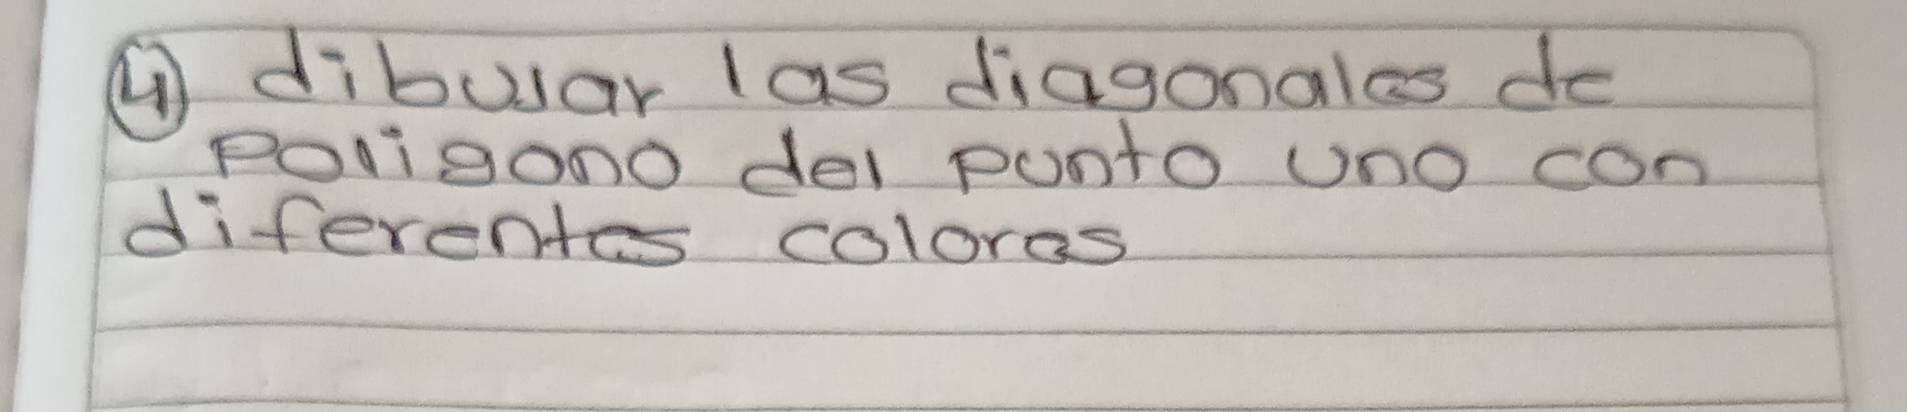 ④ dibujar las diagonales de
poligono del punto uno con
diferentes colores